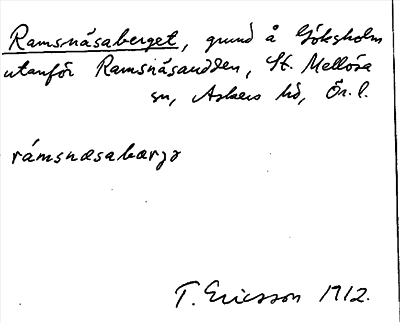 Ramsnäsaberget, grund å Göksholm
utanför Ramsnäsaudden, St. Mellösa
sn, Askers hd, Ör. l.
rámsnæsabærjə
T. Ericsson 1912.